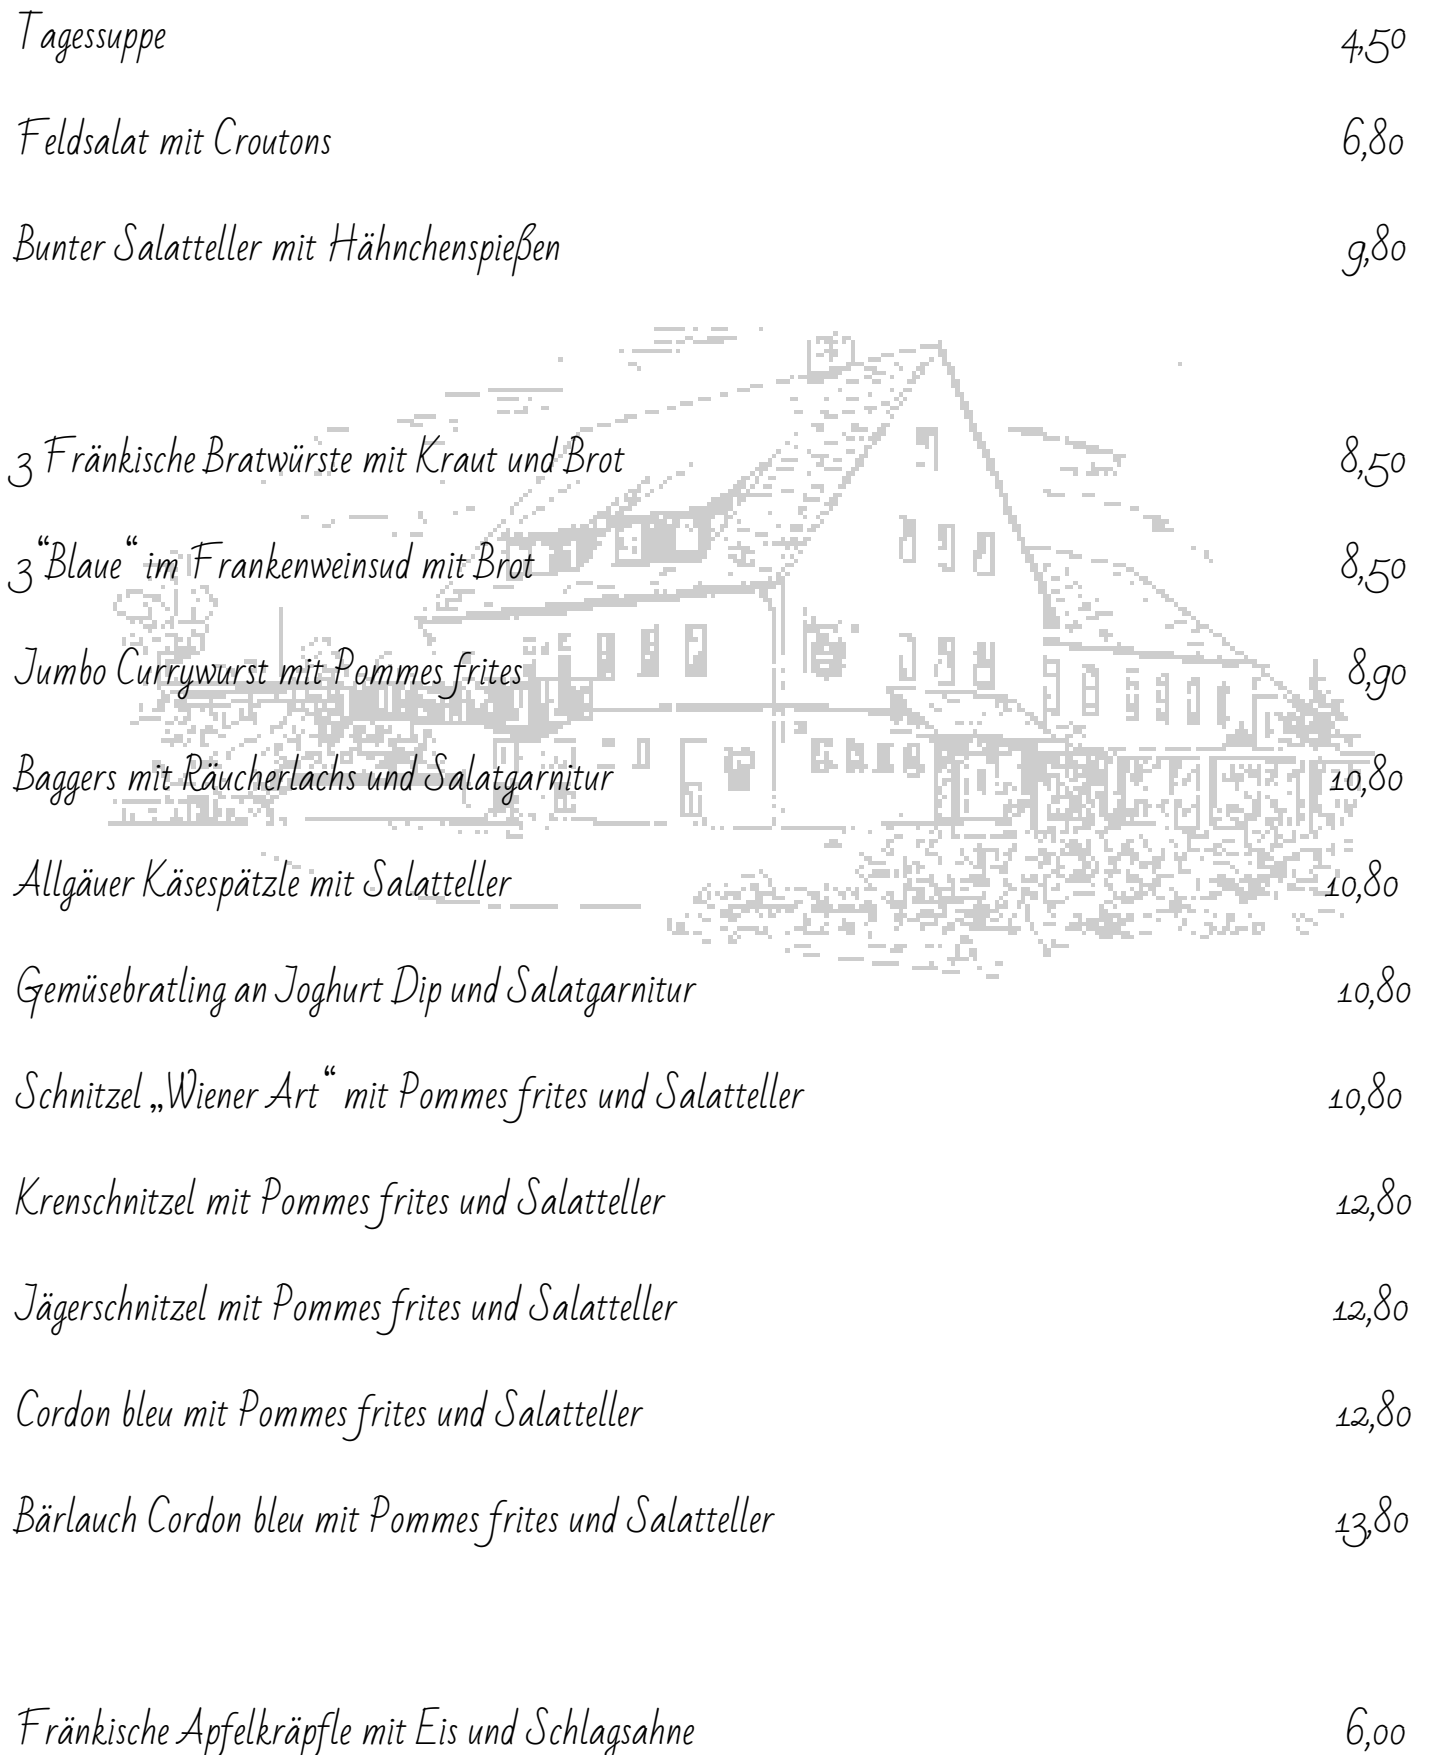 Tagessuppe 4,50
Feldsalat mit Croutons 6,80
Bunter Salatteller mit Hähnchenspießen 9,80
3 Fränkische Bratwürste mit Kraut und Brot 8,50
3 “Blaue“ im Frankenweinsud mit Brot 8,50
Jumbo Currywurst mit Pommes frites 8,90
Baggers mit Räucherlachs und Salatgarnitur 10,80
Allgäuer Käsespätzle mit Salatteller 10,80
Gemüsebratling an Joghurt Dip und Salatgarnitur 10,80
Schnitzel „Wiener Art“ mit Pommes frites und Salatteller 10,80
Krenschnitzel mit Pommes frites und Salatteller 12,80
Jägerschnitzel mit Pommes frites und Salatteller 12,80
Cordon bleu mit Pommes frites und Salatteller 12,80
Bärlauch Cordon bleu mit Pommes frites und Salatteller 13,80
Fränkische Apfelkräpfle mit Eis und Schlagsahne 6,00